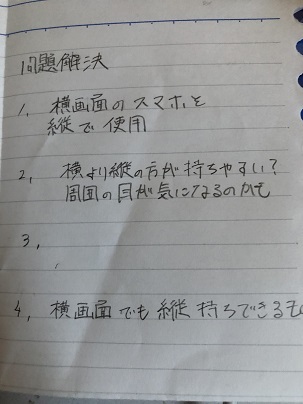 問題解決
1. 横画面のスマホを
縦で使用
2. 横より縦の方が持ちやすい?
周囲の目が気になるのかも
3.
4. 横画面でも縦持ちできるもの